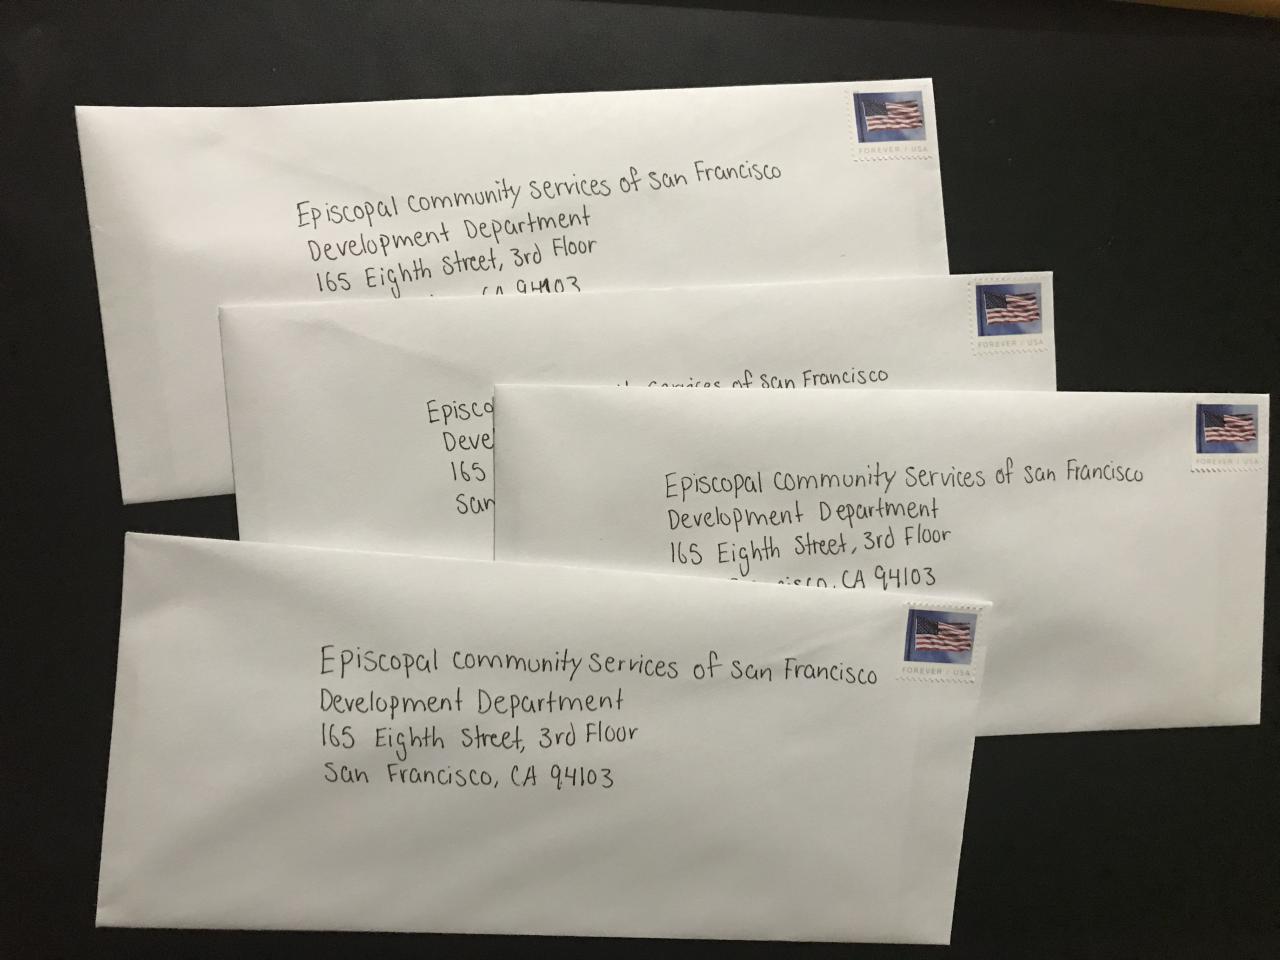 FOREVER / USA
Episcopal Community Services of San Francisco
Development Department
165 Eighth Street, 3rd Floor
CA 94103
FOREVER / USA
Services of San Francisco
Episco
Deve
165
San
FOREVER / USA
Episcopal Community Services of San Francisco
Development Department
165 Eighth Street, 3rd Floor
Francisco, CA 94103
FOREVER / USA
Episcopal Community Services of San Francisco
Development Department
165 Eighth Street, 3rd Floor
San Francisco, CA 94103